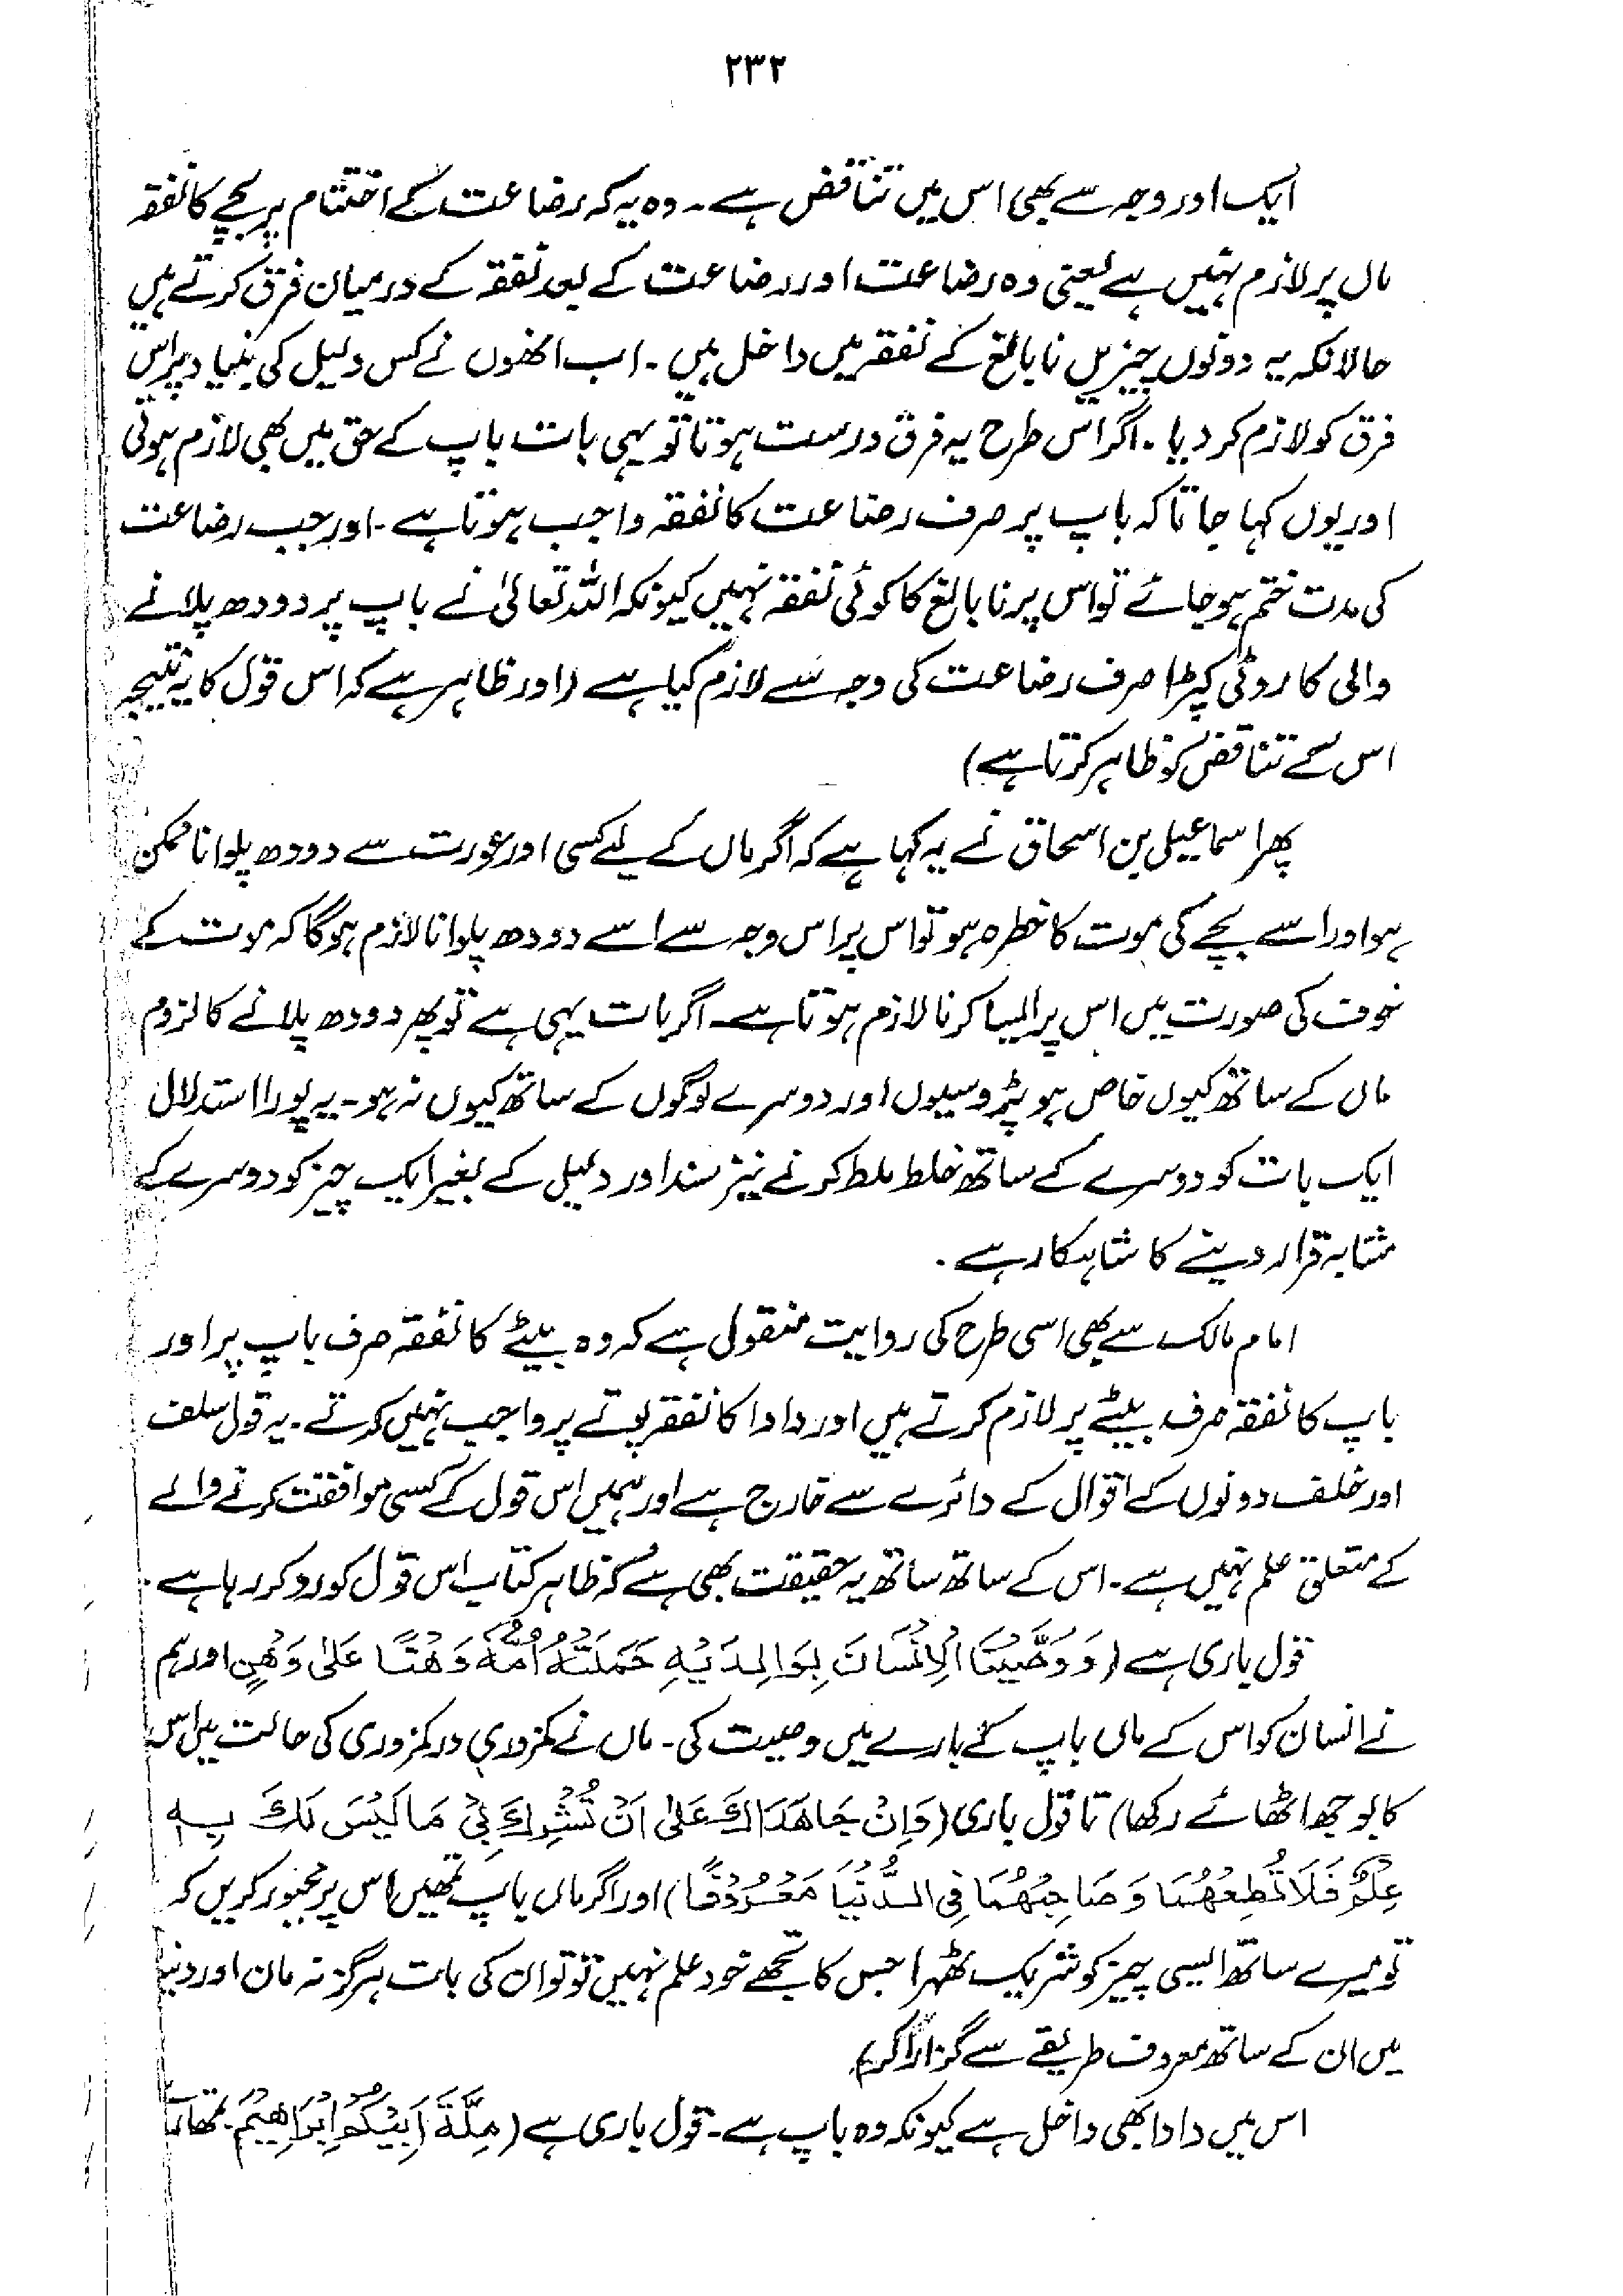 ۲۳۲
ایک اور وجہ سے بھی اس میں تناقض ہے۔ وہ یہ کہ رضاعت کے اختتام پر بچے کا نفقہ
ماں پر لازم نہیں ہے یعنی وہ رضاعت اور رضاعت کے بعد نفقہ کے درمیان فرق کرتے ہیں
حالانکہ یہ دونوں چیزیں نابالغ کے نفقہ میں داخل ہیں۔ اب انھوں نے کس دلیل کی بنیاد پر اس
فرق کو لازم کر دیا۔ اگر اس طرح یہ فرق درست ہوتا تو یہی بات باپ کے حق میں بھی لازم ہوتی
اور یوں کہا جاتا کہ باپ پر صرف رضاعت کا نفقہ واجب ہوتا ہے۔ اور جب رضاعت
کی مدت ختم ہو جائے تو اس پر نابالغ کا کوئی نفقہ نہیں کیونکہ اللہ تعالیٰ نے باپ پر دودھ پلانے
والی کا روٹی کپڑا صرف رضاعت کی وجہ سے لازم کیا ہے (اور ظاہر ہے کہ اس قول کا یہ نتیجہ
اس کے تناقض کو ظاہر کرتا ہے)
پھر اسماعیل بن اسحاق نے یہ کہا ہے کہ اگر ماں کے لیے کسی اور عورت سے دودھ پلوانا ممکن
ہو اور اسے بچے کی موت کا خطرہ ہو تو اس پر اس وجہ سے اسے دودھ پلوانا لازم ہوگا کہ موت کے
خوف کی صورت میں اس پر ایسا کرنا لازم ہوتا ہے۔ اگر بات یہی ہے تو پھر دودھ پلانے کا لزوم
ماں کے ساتھ کیوں خاص ہو پڑوسیوں اور دوسرے لوگوں کے ساتھ کیوں نہ ہو۔ یہ پورا استدلال
ایک بات کو دوسرے کے ساتھ خلط ملط کرنے نیز سند اور دلیل کے بغیر ایک چیز کو دوسرے کے
مشابہ قرار دینے کا شاہکار ہے۔
امام مالک سے بھی اسی طرح کی روایت منقول ہے کہ وہ بیٹے کا نفقہ صرف باپ پر اور
باپ کا نفقہ صرف بیٹے پر لازم کرتے ہیں اور دادا کا نفقہ پوتے پر واجب نہیں کرتے۔ یہ قول سلف
اور خلف دونوں کے اقوال کے دائرے سے خارج ہے اور ہمیں اس قول کے کسی موافقت کرنے والے
کے متعلق علم نہیں ہے۔ اس کے ساتھ ساتھ یہ حقیقت بھی ہے کہ ظاہر کتاب اس قول کو رد کر رہا ہے۔
قول باری ہے (وَوَصَّيْنَا الْاِنْسَانَ بِوَالِدَيْهِ حَمَلَتْهُ اُمُّهٗ وَهْنًا عَلٰى وَهْنٍ اور ہم
نے انسان کو اس کے ماں باپ کے بارے میں وصیت کی۔ ماں نے کمزوری در کمزوری کی حالت میں اس
کا بوجھ اٹھائے رکھا) تا قول باری (وَاِنْ جَاهَدَاكَ عَلٰى اَنْ تُشْرِكَ بِيْ مَا لَيْسَ لَكَ بِهٖ
عِلْمٌ فَلَا تُطِعْهُمَا وَصَاحِبْهُمَا فِي الدُّنْيَا مَعْرُوْفًا) اور اگر ماں باپ تمھیں اس پر مجبور کریں کہ
تو میرے ساتھ ایسی چیز کو شریک ٹھہرا جس کا تجھے خود علم نہیں تو تو ان کی بات ہرگز نہ مان اور دنیا
میں ان کے ساتھ معروف طریقے سے گزارا کر)
اس میں دادا بھی داخل ہے کیونکہ وہ باپ ہے۔ قول باری ہے (مِلَّةَ اَبِيْكُمْ اِبْرَاهِيْمَ۔ تمھارے